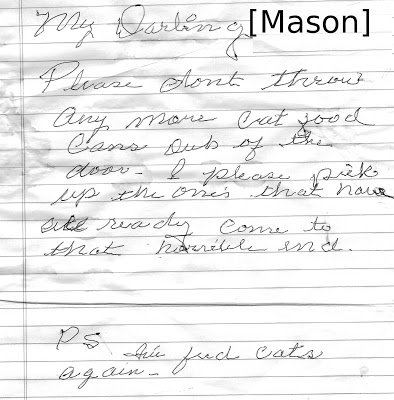 My Darling [Mason]
Please dont throw
any more cat food
cans out of the
door - & please pick
up the one's that have
all ready come to
that horrible end.
PS I've fed cats
again -